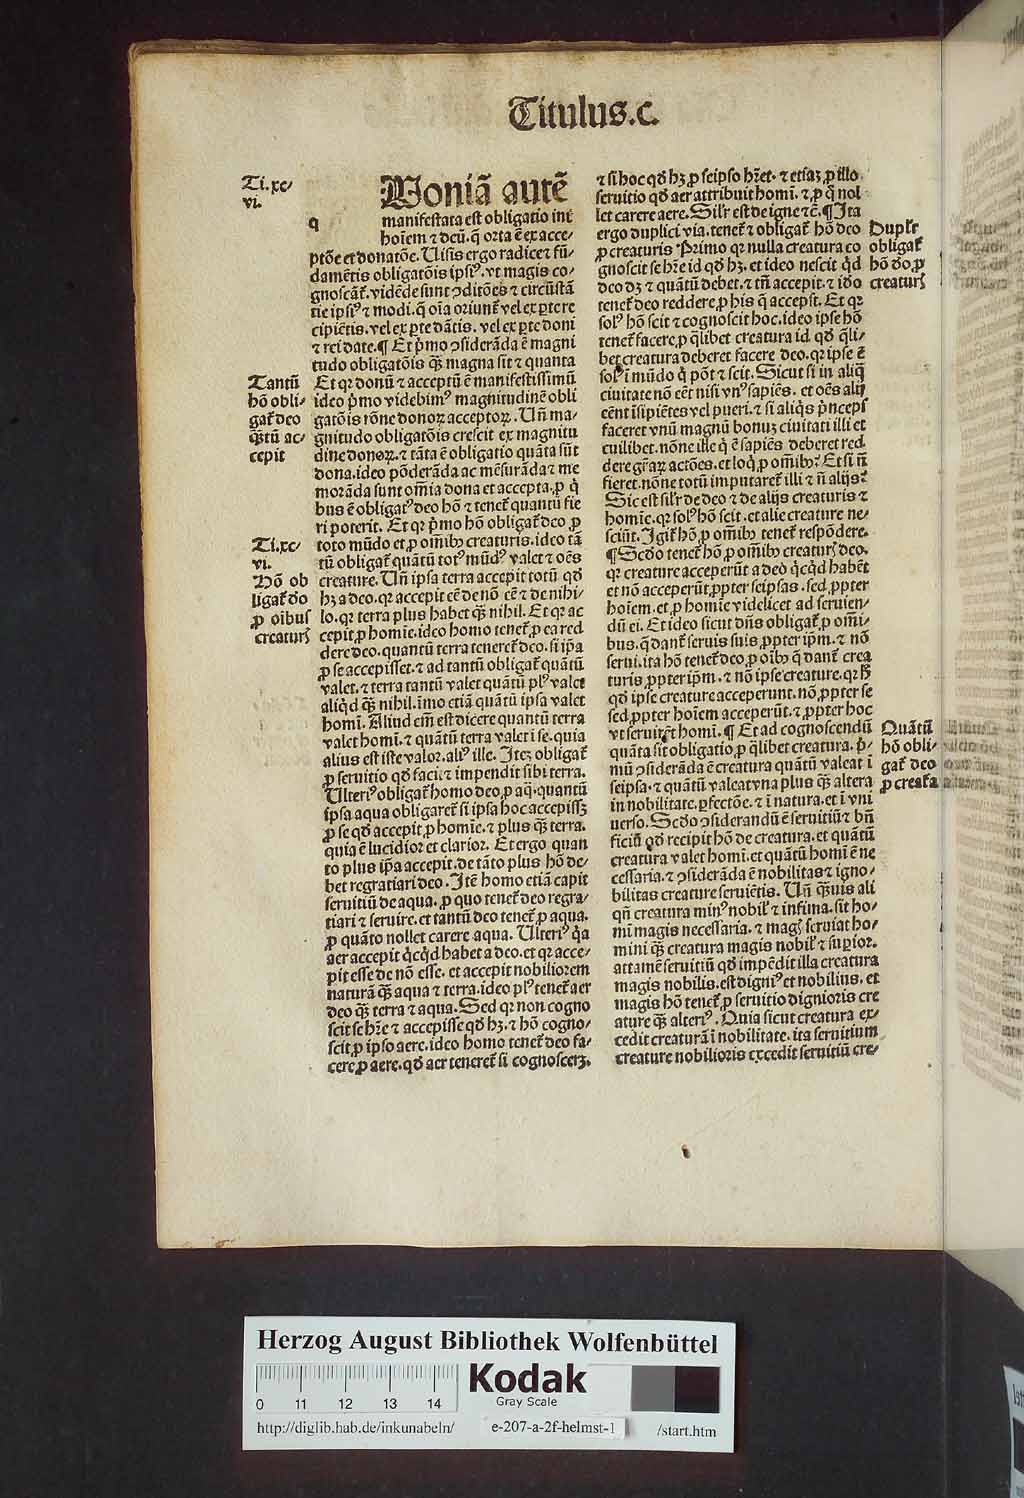 Titulus.c.
Ti.xc/
vi.
q
Uoniā autē
manifestata est obligatio int̄
hoīem ⁊ deū. q̄ orta ē ex acce⸗
ptōe et donatōe. Uisis ergo radice ⁊ fū⸗
damētis obligatōis ipsiꝰ. vt magis co⸗
gnoscāt̄. vidēde sunt ꝯditōes ⁊ circūstā
tie ipsiꝰ ⁊ modi. q̄ oīa oriunt̄ vel ex ꝑte re
cipiētis. vel ex ꝑte dātis. vel ex ꝑte doni
⁊ rei date. ¶ Et p̄mo ꝯsiderāda ē magni
tudo obligatōis qꝫ̄ magna sit ⁊ quanta
Et qꝛ donū ⁊ acceptū ē manifestissimū
ideo p̄mo videbimꝰ magnitudinē obli
gatōis rōne donoꝝ acceptoꝝ. Un̄ ma⸗
gnitudo obligatōis crescit ex magnitu
dine donoꝝ. ⁊ tāta ē obligatio quāta sūt
dona. ideo pōderāda ac mēsurāda ⁊ me
morāda sunt om̄ia dona et accepta. ꝓ q̇
bus ē obligatꝰ deo hō ⁊ tenet̄ quantū fie
ri poterit. Et qꝛ p̄mo hō obligat̄ deo ꝓ
toto mūdo et ꝓ om̄ibꝰ creaturis. ideo tā
tū obligat̄ quātū totꝰ mūdꝰ valet ⁊ oēs
creature. Un̄ ipsa terra accepit totū qd̄
hꝫ a deo. qꝛ accepit eē de nō eē ⁊ de nihi⸗
lo. qꝛ terra plus habet qꝫ̄ nihil. Et qꝛ ac
cepit ꝓ homīe. ideo homo tenet̄ ꝓ ea red
dere deo. quantū terra teneret̄ deo. si ip̄a
ꝓ se accepisset. ⁊ ad tantū obligat̄ quātū
valet. ⁊ terra tantū valet quātū plꝰ valet
aliq̇d qꝫ̄ nihil. īmo etiā quātū ipsa valet
homī. Aliud em̄ est dicere quantū terra
valet homī. ⁊ quātū terra valet ī se. quia
alius est iste valor. aliꝰ ille. Iteꝫ obligat̄
ꝓ seruitio qd̄ facit ⁊ impendit sibi terra.
Ulteriꝰ obligat̄ homo deo. ꝓ aq̄. quantū
ipsa aqua obligaret̄ si ipsa hoc accepissꝫ
ꝓ se qd̄ accepit ꝓ homīe. ⁊ plus qꝫ̄ terra.
quia ē lucidior et clarior. Et ergo quan
to plus ip̄a accepit. de tāto plus hō de⸗
bet regratiari deo. Itē homo etiā capit
seruitiū de aqua. ꝓ quo tenet̄ deo regra⸗
tiari ⁊ seruire. et tantū deo tenet̄ ꝓ aqua.
ꝓ quāto nollet carere aqua. Ulteriꝰ q̇a
aer accepit q̇cq̇d habet a deo. et qꝛ acce⸗
pit esse de nō esse. et accepit nobiliorem
naturā qꝫ̄ aqua ⁊ terra. ideo plꝰ tenet̄ aer
deo qꝫ̄ terra ⁊ aqua. Sed qꝛ non cogno
scit se hr̄e ⁊ accepisse qd̄ hꝫ. ⁊ hō cogno⸗
scit. ꝓ ipso aere. ideo homo tenet̄ deo fa⸗
cere ꝓ aere. qd̄ aer teneret̄ si cognosceꝫ.
Tantū
hō obli⸗
gat̄ deo
qꝫ̄tū ac⸗
cepit
Ti.xc⸗
vi.
Hō ob
ligat̄ do
ꝓ oībus
creaturꝭ
⁊ si hoc qd̄ hꝫ ꝓ seipso hr̄et. ⁊ etiaꝫ ꝓ illo
seruitio qd̄ aer attribuit homī. ⁊ ꝓ q̄ nol
let carere aere. Sil̓r est de igne ⁊c̄. ¶ Ita
ergo duplici via. tenet̄ ⁊ obligat̄ hō deo
ꝓ creaturis Primo qꝛ nulla creatura co
gnoscit se hr̄e id qd̄ hꝫ. et ideo nescit q̇d
deo dꝫ ⁊ quātū debet. ⁊ tn̄ accepit. ⁊ ido
tenet̄ deo reddere. ꝓ his q̄ accepit. Et qꝛ
solꝰ hō scit ⁊ cognoscit hoc. ideo ipse hō
tenet̄ facere. ꝓ q̄libet creatura id qd̄ q̄li⸗
bet creatura deberet facere deo. qꝛ ipse ē
solꝰ ī mūdo q̇ pōt ⁊ scit. Sicut si in aliq̄
ciuitate nō eēt nisi vnꝰ sapiēs. et oēs alij
eēnt īsipiētes vel pueri. ⁊ si aliq̇s p̄nceps
faceret vnū magnū bonuꝫ ciuitati illi et
cuilibet. nōne ille q̇ ē sapiēs deberet red
dere gr̄aꝝ actōes. et loq̇ ꝓ om̄ibꝰ? Et si n̄
fieret. nōne totū imputaret̄ illi ⁊ n̄ alijs?
Sic est sil̓r de deo ⁊ de alijs creaturis ⁊
homīe. qꝛ solꝰ hō scit. et alie creature ne⸗
sciūt. Igit̄ hō ꝓ om̄ibꝰ tenet̄ respōdere.
¶ Scd̄o tenet̄ hō ꝓ om̄ibꝰ creaturꝭ deo.
qꝛ creature acceperūt a deo q̇cq̇d habēt
et nō acceperūt ꝓpter seipsas. sed ꝓpter
hoīem. et ꝓ homīe videlicet ad seruien⸗
dū ei. Et ideo sicut dn̄s obligat̄ ꝓ om̄i⸗
bus. q̄ dant̄ seruis suis ꝓpter ip̄m. ⁊ nō
serui. ita hō tenet̄ deo. ꝓ oībꝰ q̄ dant̄ crea
turis ꝓpter ip̄m. ⁊ nō ipse creature. qꝛ hꝭ
qd̄ ipse creature acceperunt. nō ꝓpter se
sed ꝓpter hoīem acceperūt. ⁊ ꝓpter hoc
vt seruiret homī. ¶ Et ad cognoscendū
quāta sit obligatio. ꝓ q̄libet creatura. p̄⸗
mū ꝯsiderāda ē creatura quātū valeat ī
seipsa. ⁊ quātū valeat vna plus qꝫ̄ altera
in nobilitate. ꝑfectōe. ⁊ ī natura. et ī vni
uerso. Scd̄o ꝯsiderandū ē seruitiū ⁊ bn̄
ficiū qd̄ recipit hō de creatura. et quātū
creatura valet homī. et quātū homī ē ne
cessaria. ⁊ ꝯsiderāda ē nobilitas ⁊ igno⸗
bilitas creature seruiētis. Un̄ qꝫ̄uis ali
qn̄ creatura minꝰ nobil̓ ⁊ infima. sit ho⸗
mī magis necessaria. ⁊ magꝭ seruiat ho⸗
mini qꝫ̄ creatura magis nobil̓ ⁊ suꝑior.
attamē seruitiū qd̄ impēdit illa creatura
magis nobilis. est digniꝰ et nobilius. et
magis hō tenet̄ ꝓ seruitio dignioris cre
ature qꝫ̄ alteriꝰ. Quia sicut creatura ex⸗
cedit creaturā ī nobilitate. ita seruitium
creature nobilioris excedit seruitiū cre⸗
Dupl̓r
obligat̄
hō do. ꝓ
creaturꝭ
Quātū
hō obli⸗
gat̄ deo
ꝓ creat̄a
Herzog August Bibliothek Wolfenbüttel
0 11 12 13 14
Kodak
Gray Scale
http://diglib.hab.de/inkunabeln/ e-207-a-2f-helmst-1 /start.htm